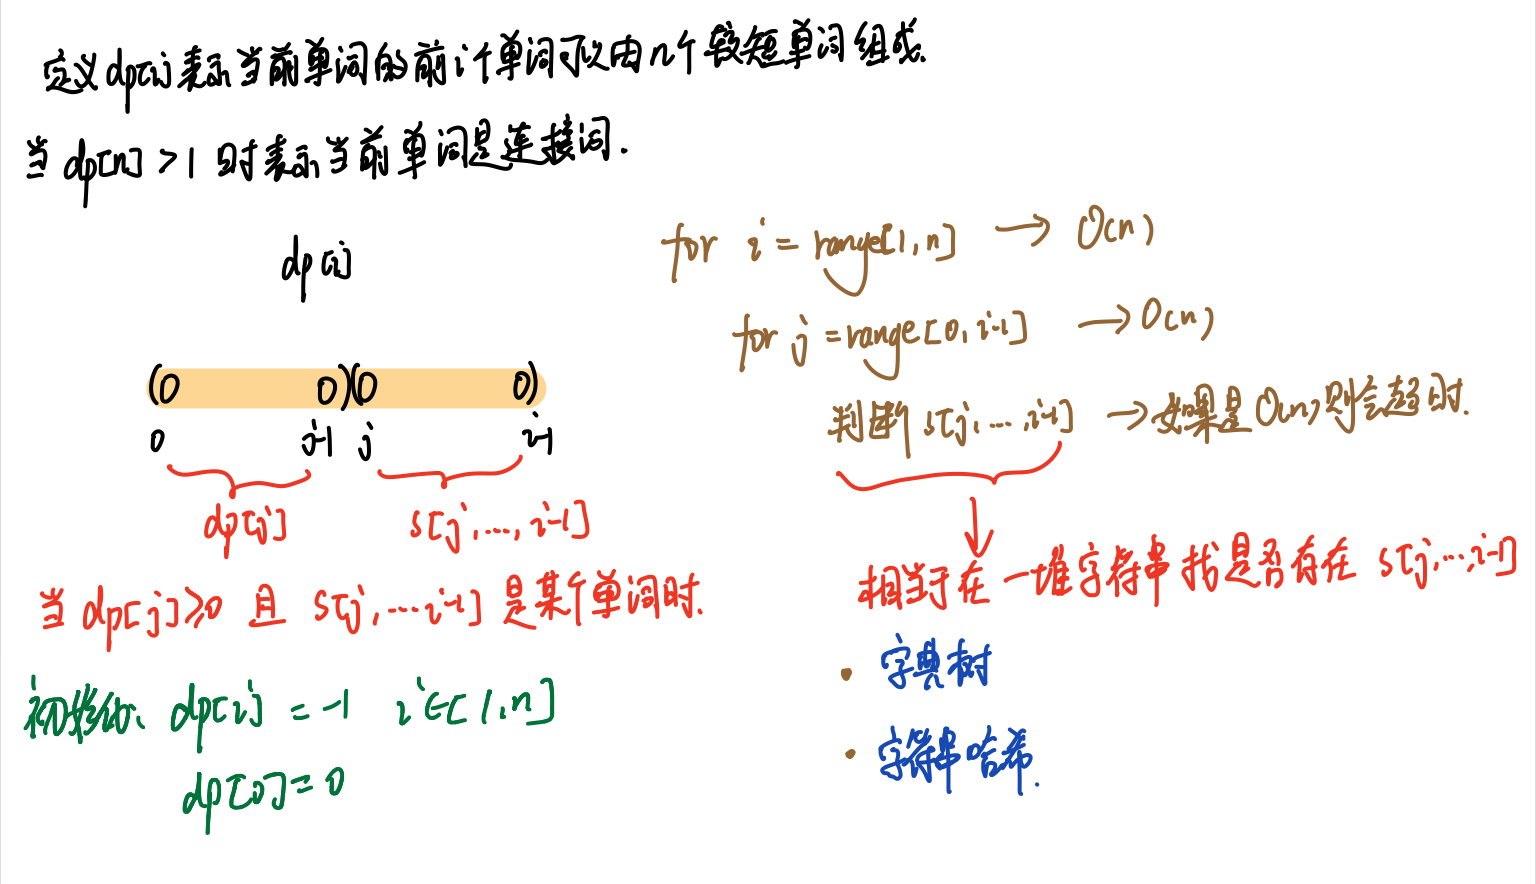 定义dp[i]表示当前单词的前i个单词可以由n个较短单词组成.
当dp[n] >1 时表示当前单词是连接词.
dp[i]
(0 0)(0 0)
0 j-1 j i-1
dp[j] s[j,...,i-1]
当 dp[j]≥0 且 s[j,...i-1] 是某个单词时.
初始化: dp[i] = -1 i∈[1,n]
dp[0]=0
for i = range[1,n] → O(n)
for j = range[0,i-1] → O(n)
判断 s[j,...,i-1] → 如果是O(n)则会超时.
相当于在一堆字符串找是否存在 s[j,...,i-1]
· 字典树
· 字符串哈希.